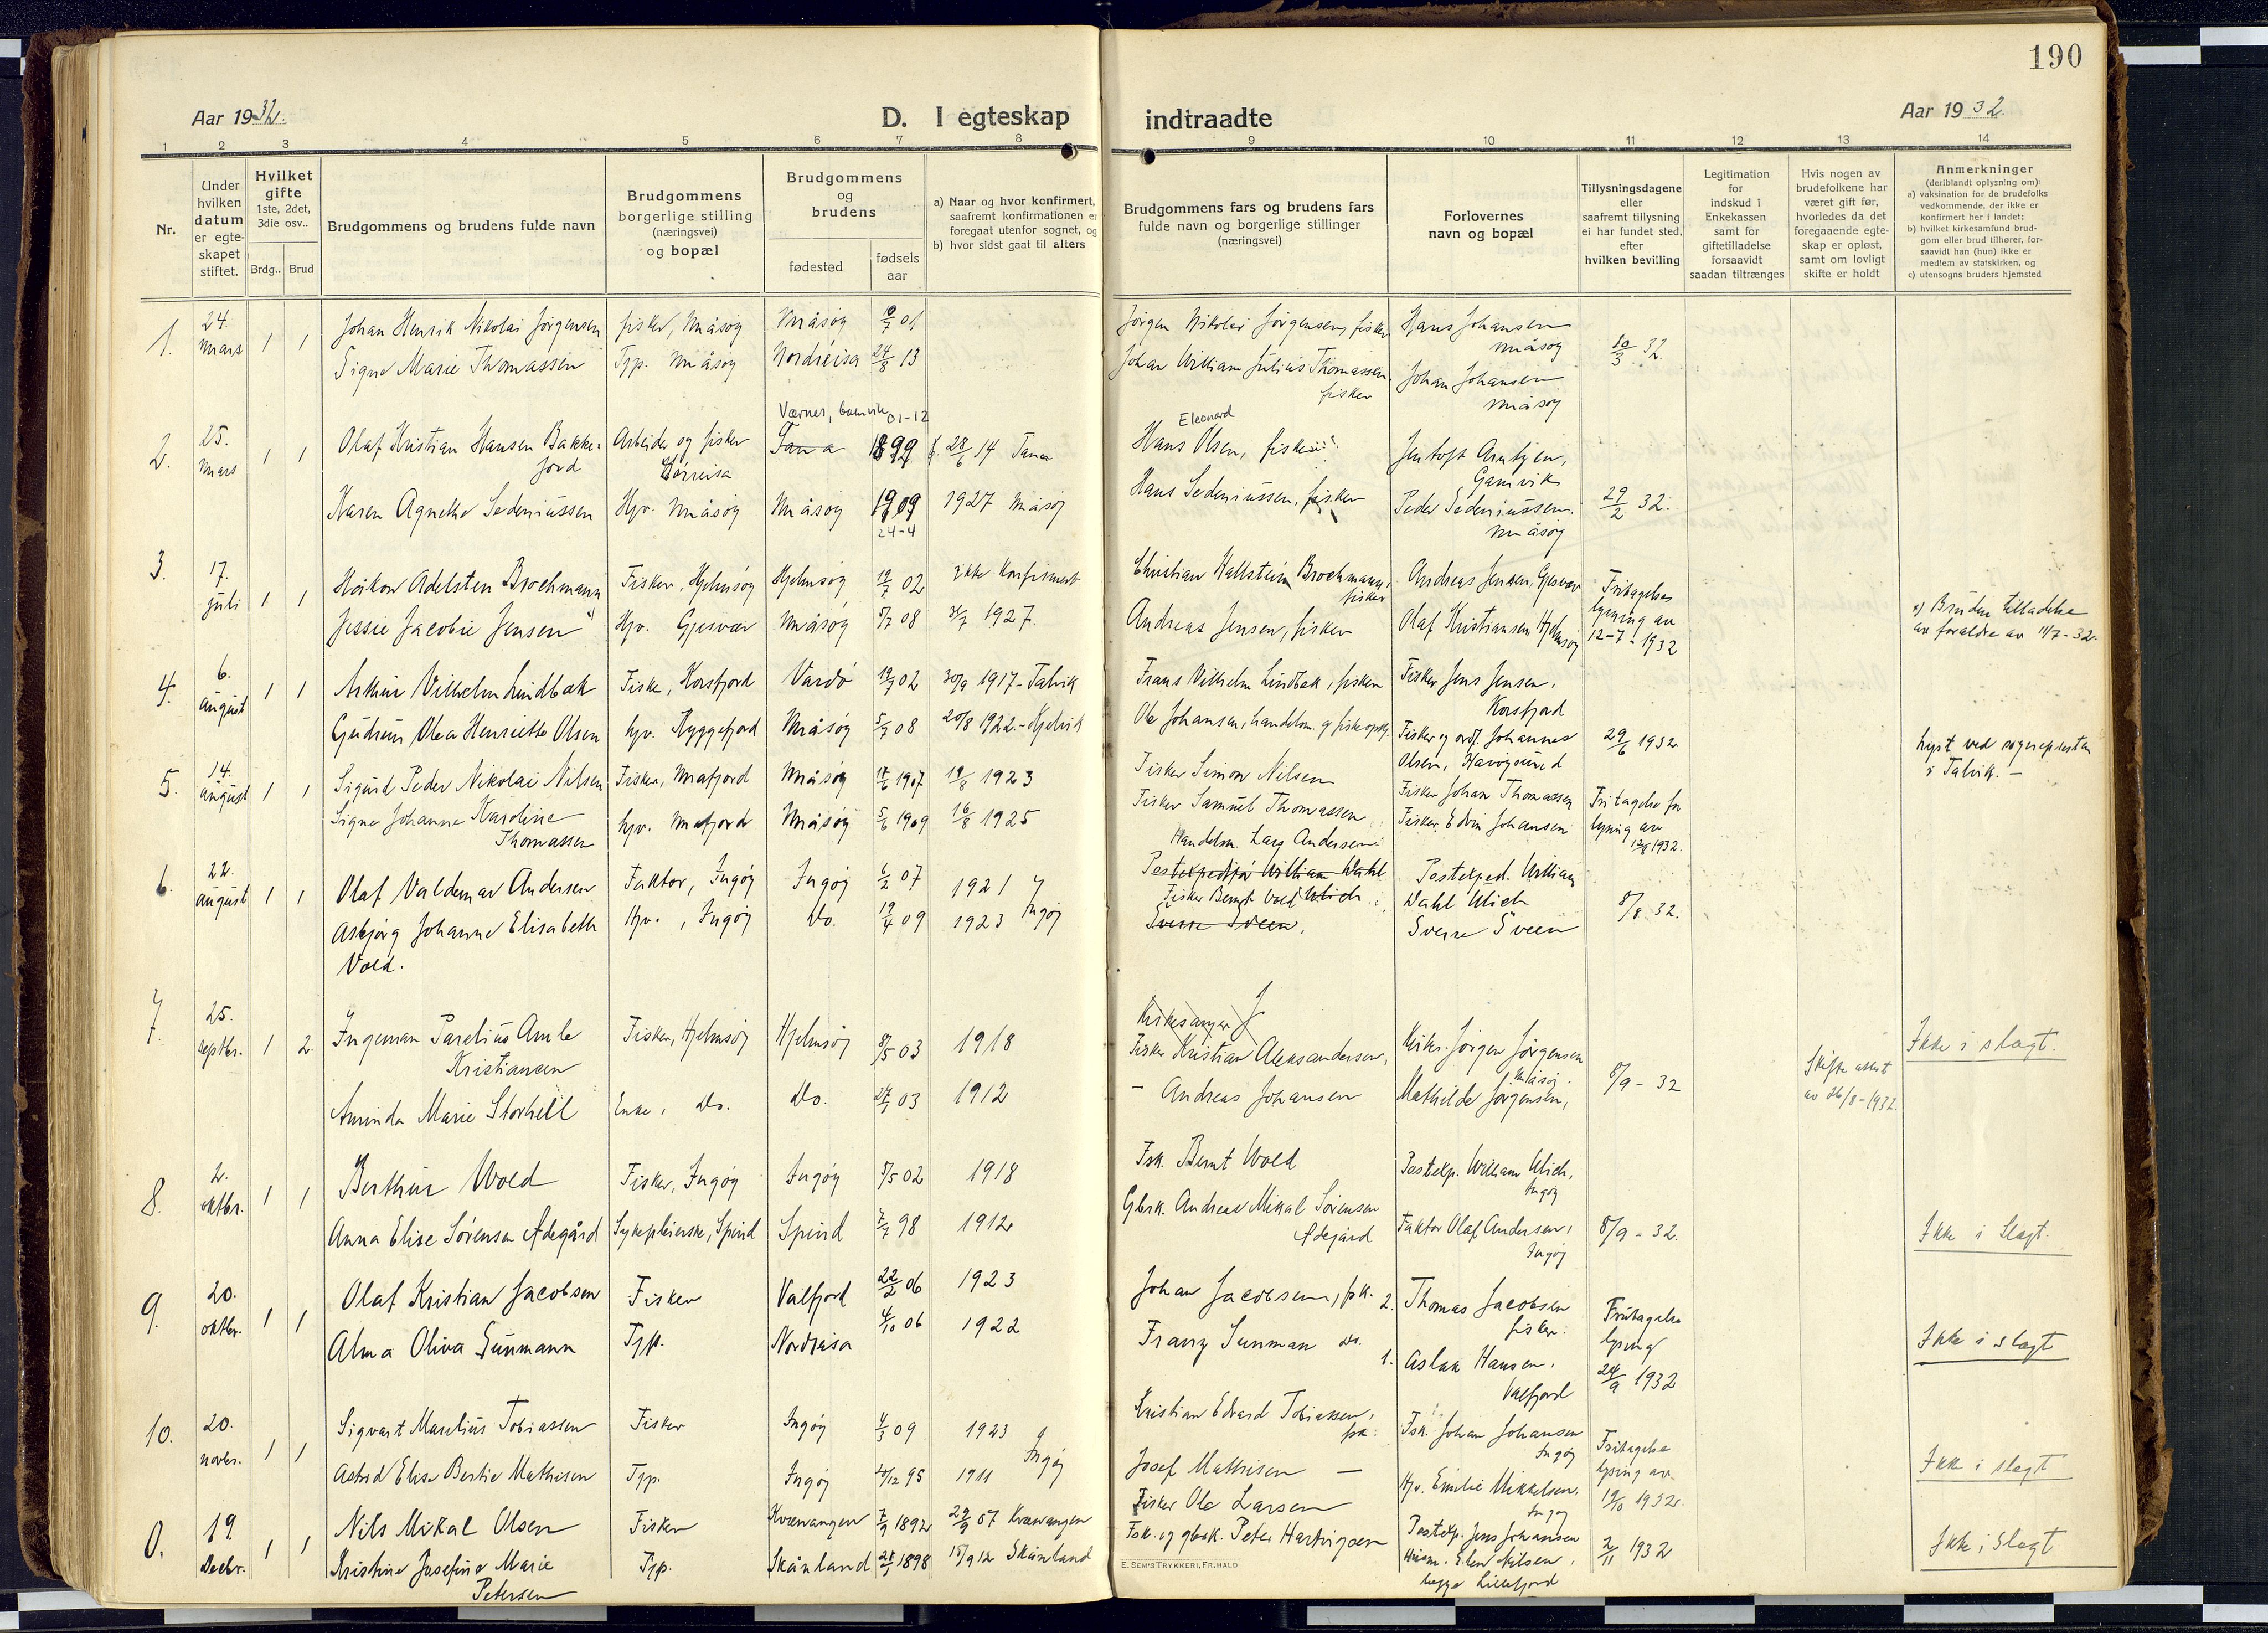 190
Aar 1932.
D. I egteskap
indtraadte
Aar 1932.
1 2 3 4 5 6 7 8 9 10 11 12 13 14
Nr.
Under hvilken datum er egteskapet stiftet.
Hvilket gifte
1ste, 2det, 3die osv..
Brdg.. Brud
Brudgommens og brudens fulde navn
Brudgommens borgerlige stilling (næringsvei) og bopæl
Brudgommens og brudens
fødested
fødsels aar
a) Naar og hvor konfirmert,
saafremt konfirmationen er
foregaat utenfor sognet, og
b) hvor sidst gaat til alters
Brudgommens fars og brudens fars
fulde navn og borgerlige stillinger
(næringsvei)
Forlovernes
navn og bopæl
Tillysningsdagene
eller
saafremt tillysning
ei har fundet sted,
efter
hvilken bevilling
Legitimation
for
indskud i
Enkekassen
samt for
giftetilladelse
forsaavidt
saadan tiltrænges
Hvis nogen av
brudefolkene har
været gift før,
hvorledes da det
foregaaende egte-
skap er opløst,
samt om lovligt
skifte er holdt
Anmerkninger
(deriblandt oplysning om):
a) vaksination for de brudefolks
vedkommende, der ikke er
konfirmert her i landet;
b) hvilket kirkesamfund brud-
gom eller brud tilhører, for-
saavidt han (hun) ikke er
medlem av statskirken, og
c) utensogns bruders hjemsted
1. 24. Mars 1 1
Johan Henrik Nikolai Jørgensen fisker, Måsøy Måsøy 10/7 01
Signe Marie Thomassen Tjp. Måsøy Nordreisa 24/8 13
Jørgen Nikolai Jørgensen, fisker Hans Johansen Måsøy
Johan William Julius Thomassen, fisker Johan Johansen Måsøy
10/3 32.
2. 25. Mars 1 1
Olaf Kristian Hansen Bakkejord Arbeider og fisker Sørreisa
Værnes, 01-12
Tana 1899 28/6 14 Tana
Karen Agnethe Sedeniussen Hjv. Måsøy Måsøy 1909 1927 Måsøy
24-4
Eleonard
Hans Olsen, fisker Jentoft Arntzen, Gamvik
Hans Sedeniussen, fisker Peder Sedeniussen. Måsøy
29/2 32.
3. 17. juli 1 1
Håkon Adelsten Brochmann Fisker, Hjelmsøy Hjelmsøy 19/7 02 ikke konfirmert
Jessie Jacobie Jensen Hjv. Gjesvær Måsøy 5/7 08 1927
Christian Hallstein Brochmann, fisker Andreas Jensen, Gjesvær
Andreas Jensen, fisker Olaf Kristiansen Hjelmsøy
Fritagelse lysning av 12-7-1932
a) Bruden tilladelse
av foreldre av 11/7-32.
4. 6. august 1 1
Arthur Vilhelm Lindbæk Fisker, Korsfjord Vardø 19/7 02 30/9 1917 - Talvik
Gudrun Olea Henriette Olsen hjv. Ryggefjord Måsøy 5/7 08 20/8 1922 - Kjelvik
Frans Vilhelm Lindbæk, fisker Fisker Jens Jensen. Korsfjord
Ole Johansen, handelsm. og fiskeopkj. Fisker og ordf. Johannes Olsen, Havøysund
29/6 1932
Lyst ved sognepresten
i Talvik. -
5. 14. august 1 1
Sigurd Peder Nikolai Nilsen Fisker, Mafjord Måsøy 1907 19/8 1923
Signe Johanne Karoline Thomassen hjv. Mafjord Måsøy 5/6 1909 16/8 1925
Fisker Simon Nilsen Fisker Johan Thomassen
Fisker Samuel Thomassen Fisker, Edvin Johansen
Fritagelse for lysning av 12/8 1932.
6. 22. august 1 1
Olaf Valdemar Andersen Faktor, Ingøy Ingøy 6/2 07 1921
Asbjørg Johanne Elisabeth Vold. Hjv., Ingøy Do. 19/4 09 1923 Ingøy
Handelsm. Lars Andersen
Postexpeditør William Dahl Ulich
Fisker Bernt Wold
Sverre Sveen,
Postexped. William Dahl Ulich
Sverre Sveen
8/8 32.
7. 25. septbr. 1 2.
Ingeman Parelius Amle Kristiansen Fisker, Hjelmsøy Hjelmsøy 8/5 03 1918
Aminda Marie Storhell Enke, do. do. 03 1912
Kirkesanger J
Fisker Kristian Aleksandersen, Kirkes. Jørgen Jørgensen Måsøy.
- Andreas Johansen Mathilde Jørgensen,
8/9 - 32
Skifte attest av 26/8-1932.
Ikke i slægt.
8. 2. oktbr. 1 1
Berthur Wold Fisker, Ingøy Ingøy 5/5 02 1918
Anna Elise Sørensen Ådegård Sykepleierske, Spind Spind 7/7 98 1912
Fsk. Bernt Wold Postexp. William Ulich, Ingøy
Gbrk. Andreas Mikal Sørensen Ådegård Faktor Olaf Andersen, Ingøy
8/9 - 32.
Ikke i Slægt.
9. 20. oktbr. 1 1
Olaf Kristian Jacobsen Fisker Valfjord 22/2 06 1923
Alma Oliva Sunmann Tjp. Nordreisa 4/10 06 1922
Johan Jacobsen, fsk. 2. Thomas Jacobsen fisker.
Franz Sunman do. 1. Aslak Hansen. Valfjord
Fritagelse lysning 24/9 1932
Ikke i slægt
10. 20. novbr. 1 1
Sigvart Marelius Tobiassen Fisker Ingøy 4/3 09 1923
Astrid Elise Bertie Mathisen Tjp. Ingøy 20/12 95 1911 Ingøy
Kristian Edvard Tobiassen, fsk. Fsk. Johan Johansen Ingøy
Josef Mathisen - Hjv. Emilie Mikkelsen. Ingøy
Fritagelse lysning av 19/10 1932.
Ikke i slægt
0. 19. Decbr. 1 1
Nils Mikal Olsen Fisker Kvænangen 7/9 1892 29/9 07 Kvænangen
Kristine Josefine Marie Petersen Tjp. Skånland 1898 15/9 12 Skånland
Fisker Ole Larsen Postexp. Jens Johansen
Fsk. og gbrk. Peter Hartvigsen Elen Nilsen, begge Lillefjord
2/11 1932
Ikke i Slægt
E. SEM'S TRYKKERI, FR.HALD